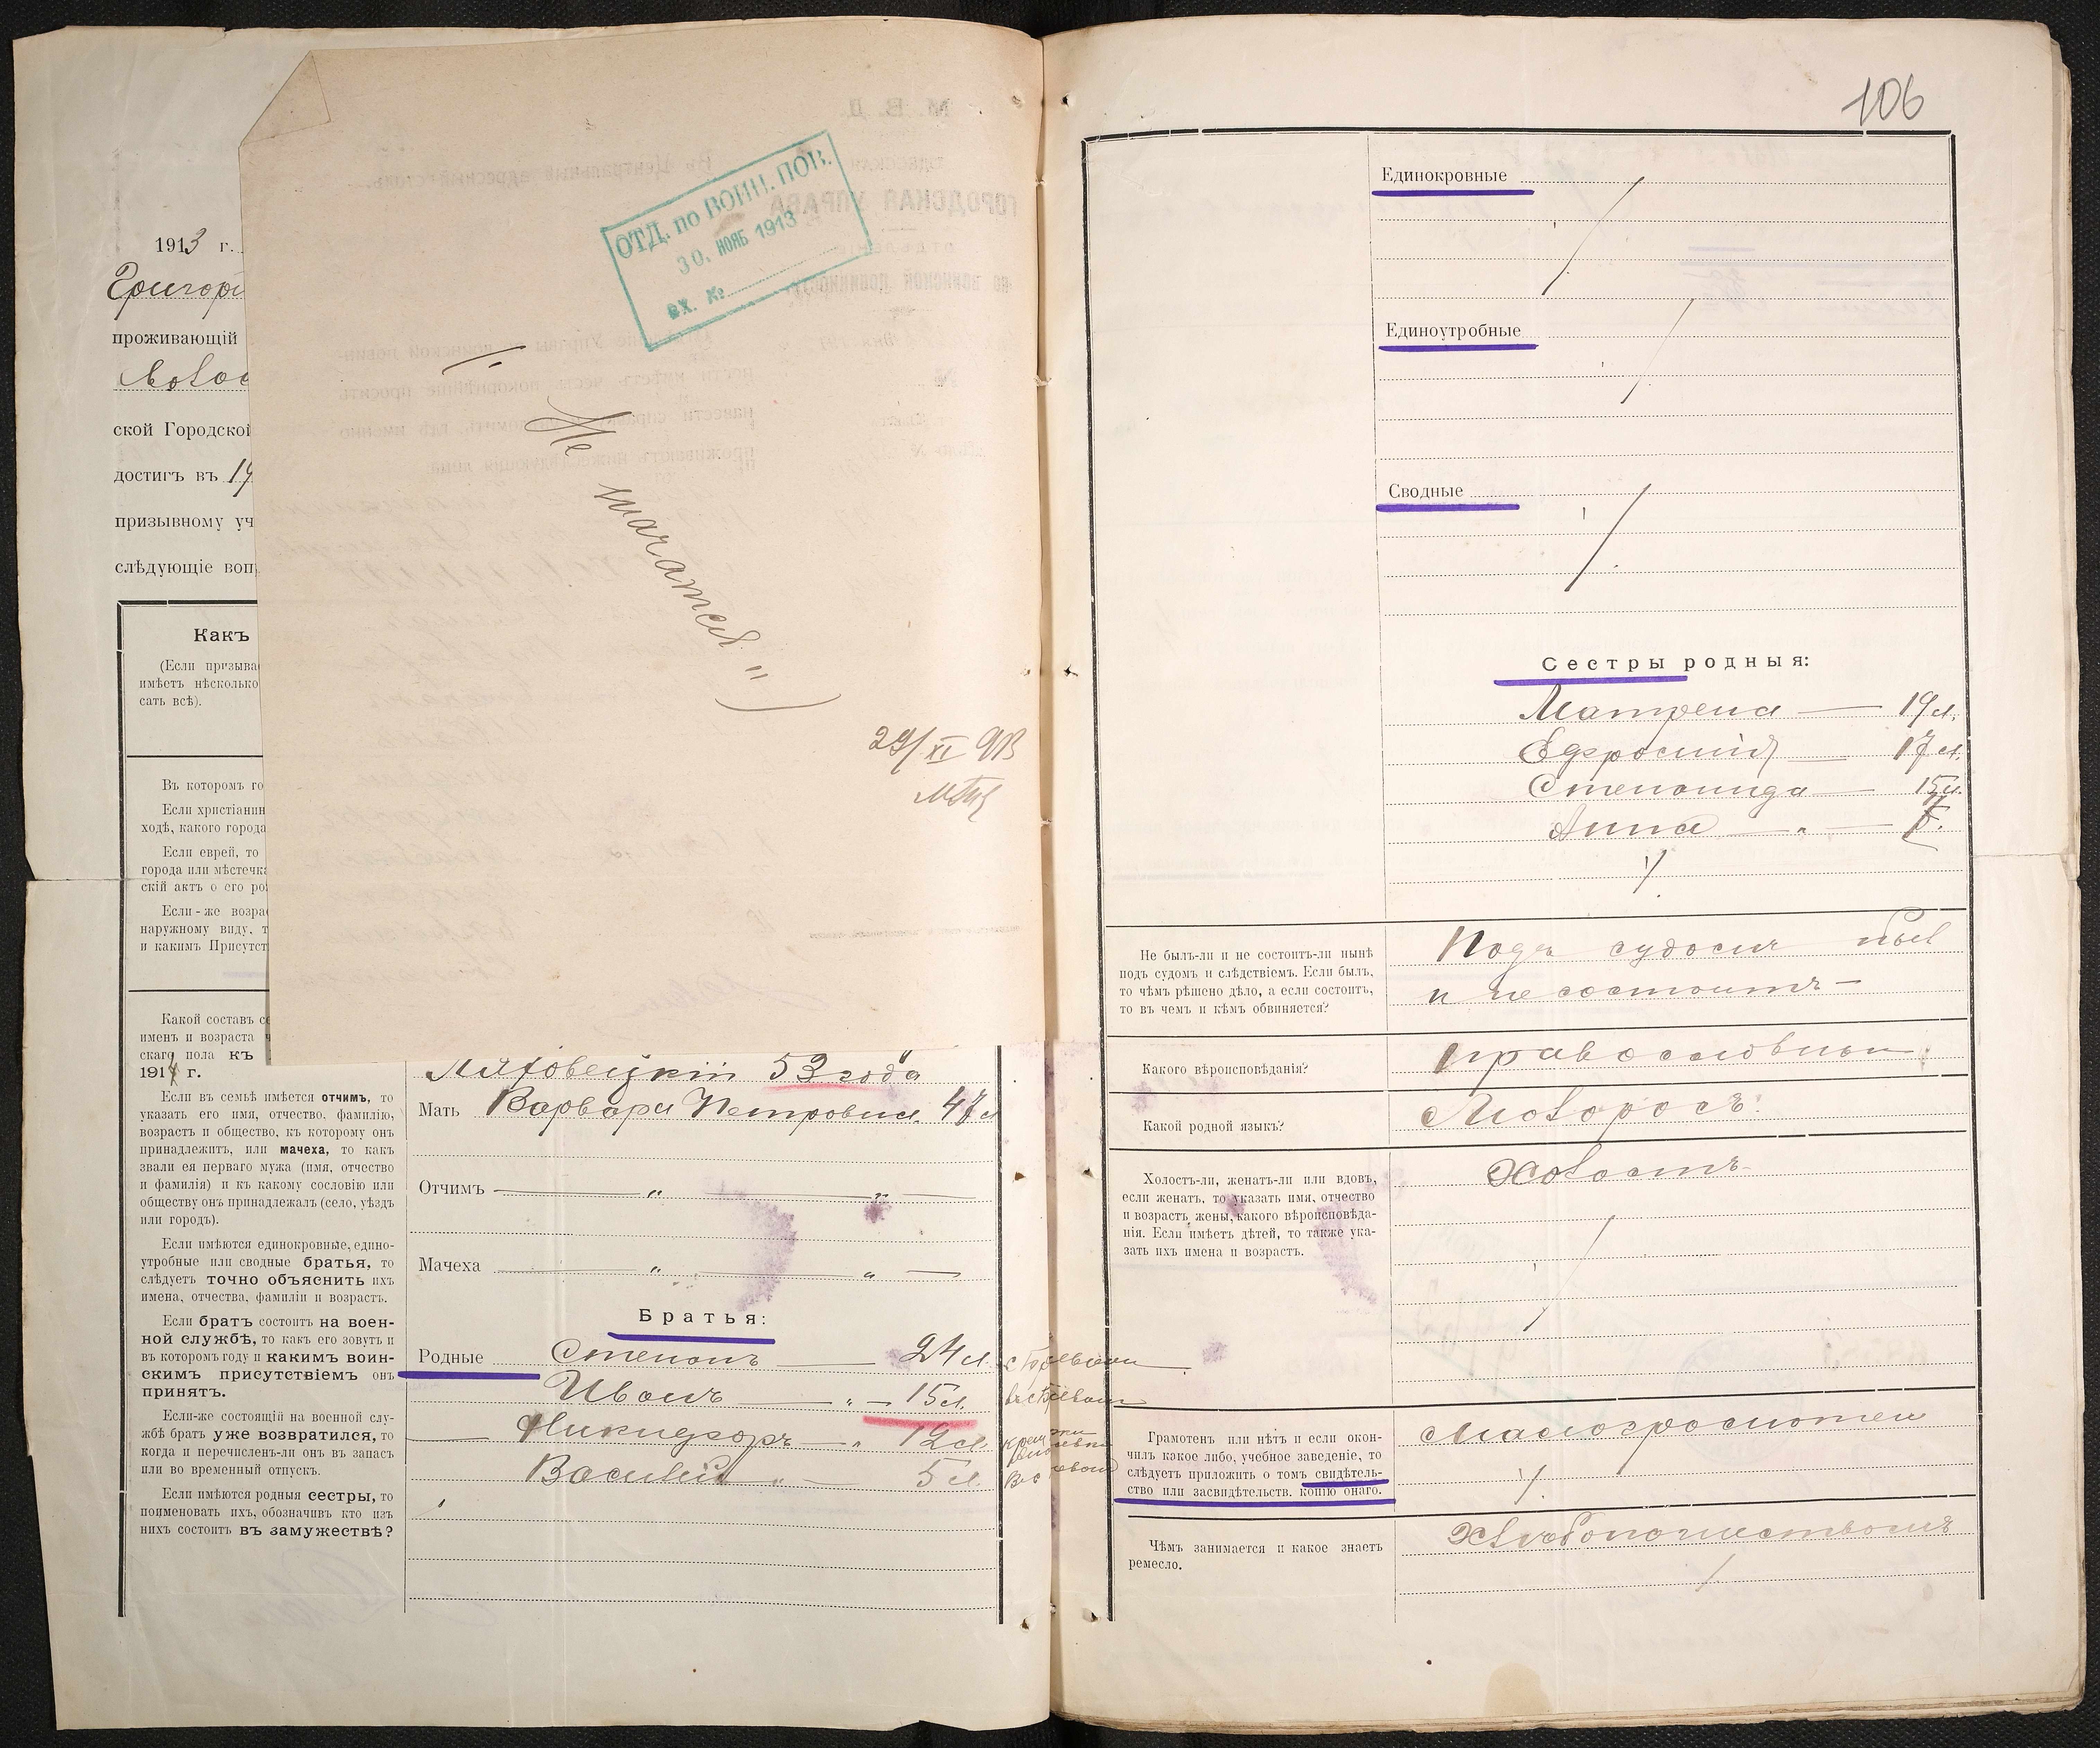 1913 г.
Григорі
проживающій
ской Городской
достигъ въ 19
призывному уч
слѣдующіе воп
Какъ
(Если призыва
имѣетъ нѣсколько
сать всѣ).
Въ которомъ го
Если христіанин
ходѣ, какого города
Если еврей, то
города или мѣстечк
скій актъ о его ро
Если-же возра
наружному виду, т
и какимъ Присутст
Какой составъ се
именъ и возраста
скаго пола къ
1914 г.
Если въ семьѣ имѣется отчимъ, то
указать его имя, отчество, фамилію,
возрастъ и общество, къ которому онъ
принадлежитъ, или мачеха, то какъ
звали ея перваго мужа (имя, отчество
и фамилія) и къ какому сословію или
обществу онъ принадлежалъ (село, уѣздъ
или городъ).
Если имѣются единокровные, едино-
утробные или сводные братья, то
слѣдуетъ точно объяснить ихъ
имена, отчества, фамиліи и возрастъ.
Если братъ состоитъ на воен-
ной службѣ, то какъ его зовутъ и
въ которомъ году и какимъ воин-
скимъ присутствіемъ онъ
принятъ.
Если-же состоящій на военной слу-
жбѣ братъ уже возвратился, то
когда и перечисленъ-ли онъ въ запасъ
или во временный отпускъ.
Если имѣются родныя сестры, то
поименовать ихъ, обозначивъ кто изъ
нихъ состоитъ въ замужествѣ?
ОТД. по ВОИН. ПОВ.
30. НОЯБ 1913
вх. №
Не
значатся"
29/XI 913
Ляховецкій 53 года
Мать Варвара Петровна 47 л
Отчимъ — " — " —
Мачеха — " — " —
Братья:
Родные Степанъ — 24 л.
Иванъ — " — 15 л.
Никифоръ — " 12 л.
Василій " — 5 л.
106
Единокровные
Единоутробные
Сводные
Сестры родныя:
Матрена — 19 л.
Ефросинія — 17 л.
Степанида — 15 л.
Анна — " —
Не былъ-ли и не состоитъ-ли нынѣ
подъ судомъ и слѣдствіемъ. Если былъ,
то чѣмъ рѣшено дѣло, а если состоитъ,
то въ чемъ и кѣмъ обвиняется?
Подъ судомъ небыл
и не состоитъ —
Какого вѣроисповѣданія?
православный
Какой родной языкъ?
Малоросъ.
Холостъ-ли, женатъ-ли или вдовъ,
если женатъ, то указать имя, отчество
и возрастъ жены, какого вѣроисповѣда-
нія. Если имѣетъ дѣтей, то также ука-
зать ихъ имена и возрастъ.
Холостъ
Грамотенъ или нѣтъ и если окон-
чилъ какое либо, учебное заведеніе, то
слѣдуетъ приложить о томъ свидѣтель-
ство или засвидѣтельств. копію онаго.
Малограмотен
Чѣмъ занимается и какое знаетъ
ремесло.
Хлѣбопашествомъ